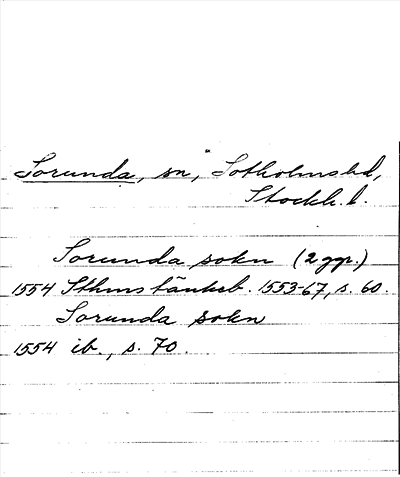 Sorunda, sn, Sotholms hd,
Stockh. l.
Sorunda sokn (2 ggr.)
1554 Sthms tänkeb. 1553-67, s. 60.
Sorunda sokn
1554 ib., s. 70.